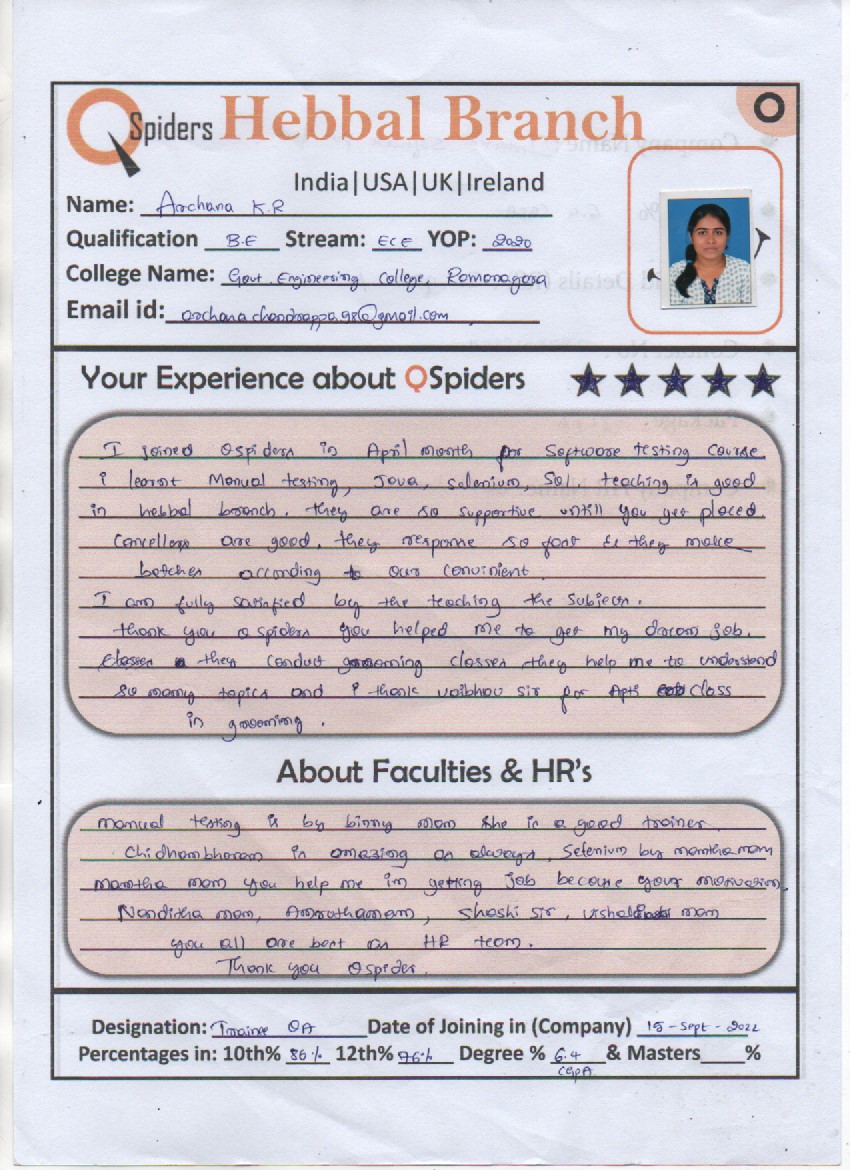 QSpiders Hebbal Branch
India|USA|UK|Ireland
Name: Archana K.R
Qualification B.E Stream: ECE YOP: 2020
College Name: Govt. Engineering College, Ramanagara
Email id: archanachandrappa98@gmail.com
Your Experience about QSpiders
I joined Qspiders in April month for Software testing Course
i learnt Manual testing, Java, selenium, Sql teaching is good
in hebbal branch. they are so supportive untill you get placed.
Concellers are good, they response so fast & they make
batches according to our convinient.
I am fully satisfied by the teaching the Subjects.
thank you Qspiders you helped me to get my dream job.
they conduct grooming classes they help me to understand
so many topics and i thank vaibhav sir for Apti class
in grooming.
About Faculties & HR's
Manual testing is by binny mam she is a good trainer.
Chidhambharam is amazing as always, Selenium by mamtha mam
mamtha mam you help me in getting job because your motivation
Nanditha mam, Amruthamam, Shashi Sir, vishal mam
you all are best as HR team.
Thank you Qspider.
Designation: Trainee QA Date of Joining in (Company) 15-Sept-2022
Percentages in: 10th% 86% 12th% 76% Degree % 6.4 & Masters %
CGPA